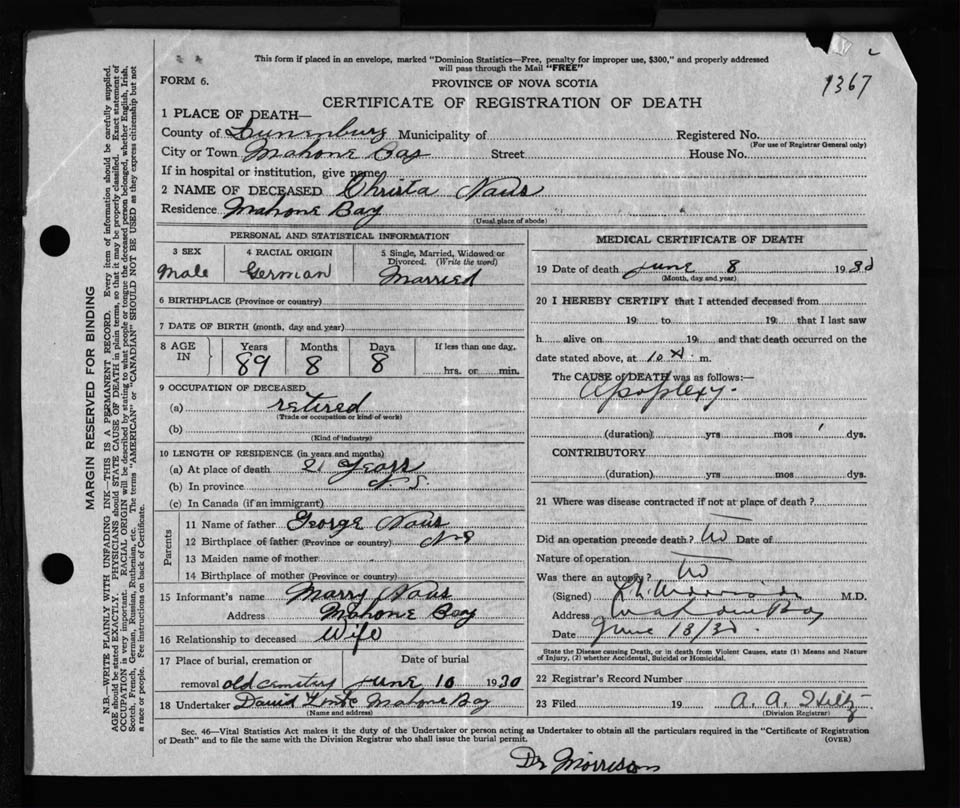 This form if placed in an envelope, marked "Dominion Statistics—Free, penalty for improper use, $300," and properly addressed
will pass through the Mail "FREE"
FORM 6.
PROVINCE OF NOVA SCOTIA
1367
CERTIFICATE OF REGISTRATION OF DEATH
1 PLACE OF DEATH—
County of Lunenburg Municipality of
Registered No.
(For use of Registrar General only)
City or Town Mahone Bay Street House No.
If in hospital or institution, give name
2 NAME OF DECEASED Christa Naus
Residence Mahone Bay
(Usual place of abode)
PERSONAL AND STATISTICAL INFORMATION
3 SEX
Male
4 RACIAL ORIGIN
German
5 Single, Married, Widowed or
Divorced. (Write the word)
Married
6 BIRTHPLACE (Province or country)
7 DATE OF BIRTH (month, day and year)
8 AGE IN
Years Months Days If less than one day.
89 8 8 hrs. or min.
9 OCCUPATION OF DECEASED
(a) retired
(Trade or occupation or kind of work)
(b)
(Kind of industry)
10 LENGTH OF RESIDENCE (in years and months)
(a) At place of death 21 Years
(b) In province N S.
(c) In Canada (if an immigrant)
Parents
11 Name of father George Naus
12 Birthplace of father (Province or country) N S
13 Maiden name of mother
14 Birthplace of mother (Province or country)
15 Informant's name Marry Naus
Address Mahone Bay
16 Relationship to deceased Wife
17 Place of burial, cremation or Date of burial
removal old cemetery June 10 1930
18 Undertaker David Mahone Bay
(Name and address)
MEDICAL CERTIFICATE OF DEATH
19 Date of death June 8 1930
(Month, day and year)
20 I HEREBY CERTIFY that I attended deceased from
19 to 19 that I last saw
h alive on 19 and that death occurred on the
date stated above, at 10 m.
The CAUSE of DEATH was as follows:—
Apoplexy.
(duration) yrs mos 1 dys.
CONTRIBUTORY
(duration) yrs mos dys.
21 Where was disease contracted if not at place of death?
Did an operation precede death? No Date of
Nature of operation
Was there an autopsy? No
(Signed) Morrison M.D.
Address Mahone Bay
Date June 18/30.
State the Disease causing Death, or in death from Violent Causes, state (1) Means and Nature
of Injury, (2) whether Accidental, Suicidal or Homicidal.
22 Registrar's Record Number
23 Filed 19 A. A. Hiltz
(Division Registrar)
Sec. 46—Vital Statistics Act makes it the duty of the Undertaker or person acting as Undertaker to obtain all the particulars required in the "Certificate of Registration
of Death" and to file the same with the Division Registrar who shall issue the burial permit. (OVER)
Dr Morrison
MARGIN RESERVED FOR BINDING
N.B.—WRITE PLAINLY WITH UNFADING INK—THIS IS A PERMANENT RECORD. Every item of information should be carefully supplied.
AGE should be stated EXACTLY. PHYSICIANS should STATE CAUSE OF DEATH in plain terms, so that it may be properly classified. Exact statement of
OCCUPATION is very important. RACIAL ORIGIN will be described by stating to what people or tongue the deceased person belonged, whether English, Irish,
Scotch, French, German, Russian, Ruthenian, etc. The terms "AMERICAN" or "CANADIAN" SHOULD NOT BE USED as they express citizenship but not
a race or people. See instructions on back of Certificate.